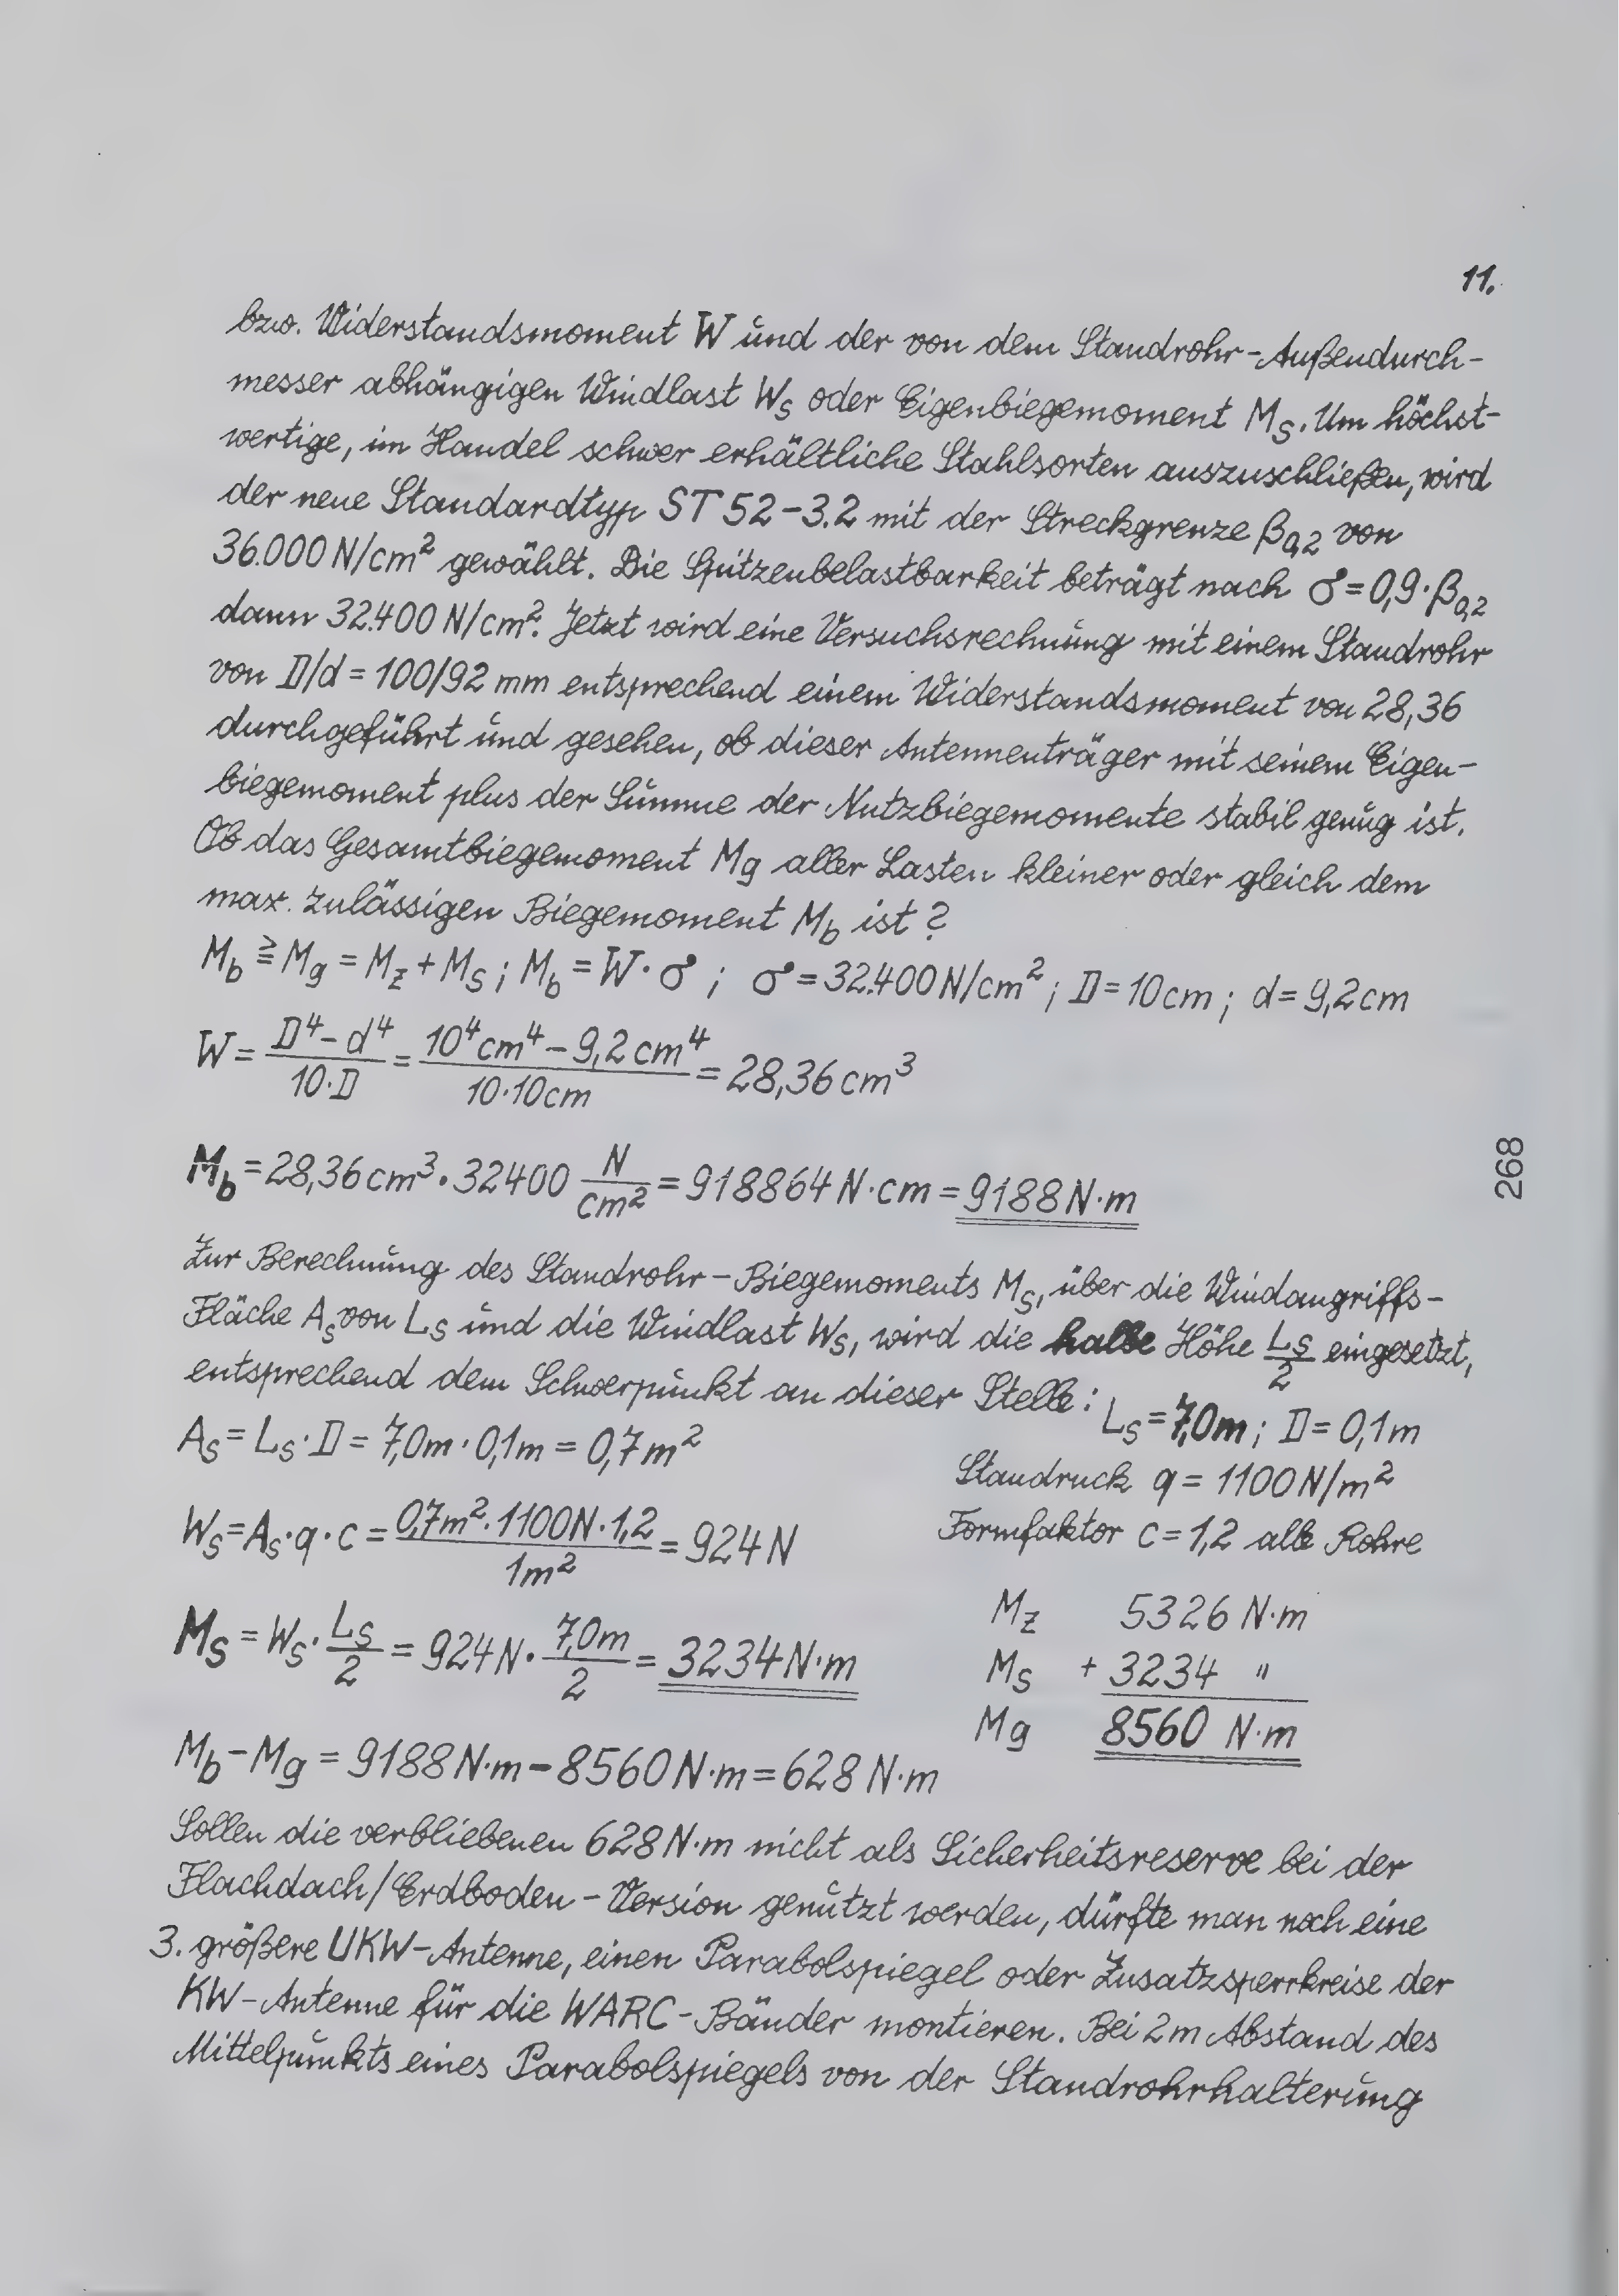 11.
bzw. Widerstandsmoment W und der von dem Standrohr-Außendurch-
messer abhängigen Windlast Ws oder Eigenbiegemoment Ms. Um höchst-
wertige, im Handel schwer erhältliche Stahlsorten auszuschließen, wird
der neue Standardtyp ST 52-3.2 mit der Streckgrenze β0,2 von
36.000 N/cm² gewählt. Die Spitzenbelastbarkeit beträgt nach σ = 0,9·β0,2
dann 32.400 N/cm². Jetzt wird eine Versuchsrechnung mit einem Standrohr
von D/d = 100/92 mm entsprechend einem Widerstandsmoment von 28,36
durchgeführt und gesehen, ob dieser Antennenträger mit seinem Eigen-
biegemoment plus der Summe der Nutzbiegemomente stabil genug ist.
Ob das Gesamtbiegemoment Mg aller Lasten kleiner oder gleich dem
max. zulässigen Biegemoment Mb ist?
Mb ≧ Mg = Mz + Ms ; Mb = W·σ ; σ = 32.400 N/cm² ; D = 10 cm ; d = 9,2 cm
W = (D⁴ - d⁴)/(10·D) = (10⁴cm⁴ - 9,2cm⁴)/(10·10cm) = 28,36 cm³
Mb = 28,36 cm³ · 32400 N/cm² = 918864 N·cm = 9188 N·m
268
Zur Berechnung des Standrohr-Biegemoments Ms, über die Windangriffs-
Fläche As von Ls und die Windlast Ws, wird die halbe Höhe Ls/2 eingesetzt,
entsprechend dem Schwerpunkt an dieser Stelle: Ls = 7,0m ; D = 0,1m
As = Ls·D = 7,0m·0,1m = 0,7m²
Staudruck q = 1100 N/m²
Ws = As·q·c = (0,7m²·1100N·1,2)/1m² = 924 N
Formfaktor c = 1,2 alle Rohre
Ms = Ws·Ls/2 = 924N·7,0m/2 = 3234 N·m
Mz 5326 N·m
Ms + 3234 "
Mg 8560 N·m
Mb - Mg = 9188 N·m - 8560 N·m = 628 N·m
Sollen die verbliebenen 628 N·m nicht als Sicherheitsreserve bei der
Flachdach/Erdboden-Version genutzt werden, dürfte man noch eine
3. größere UKW-Antenne, einen Parabolspiegel oder Zusatzsperrkreise der
KW-Antenne für die WARC-Bänder montieren. Bei 2m Abstand des
Mittelpunkts eines Parabolspiegels von der Standrohrhalterung